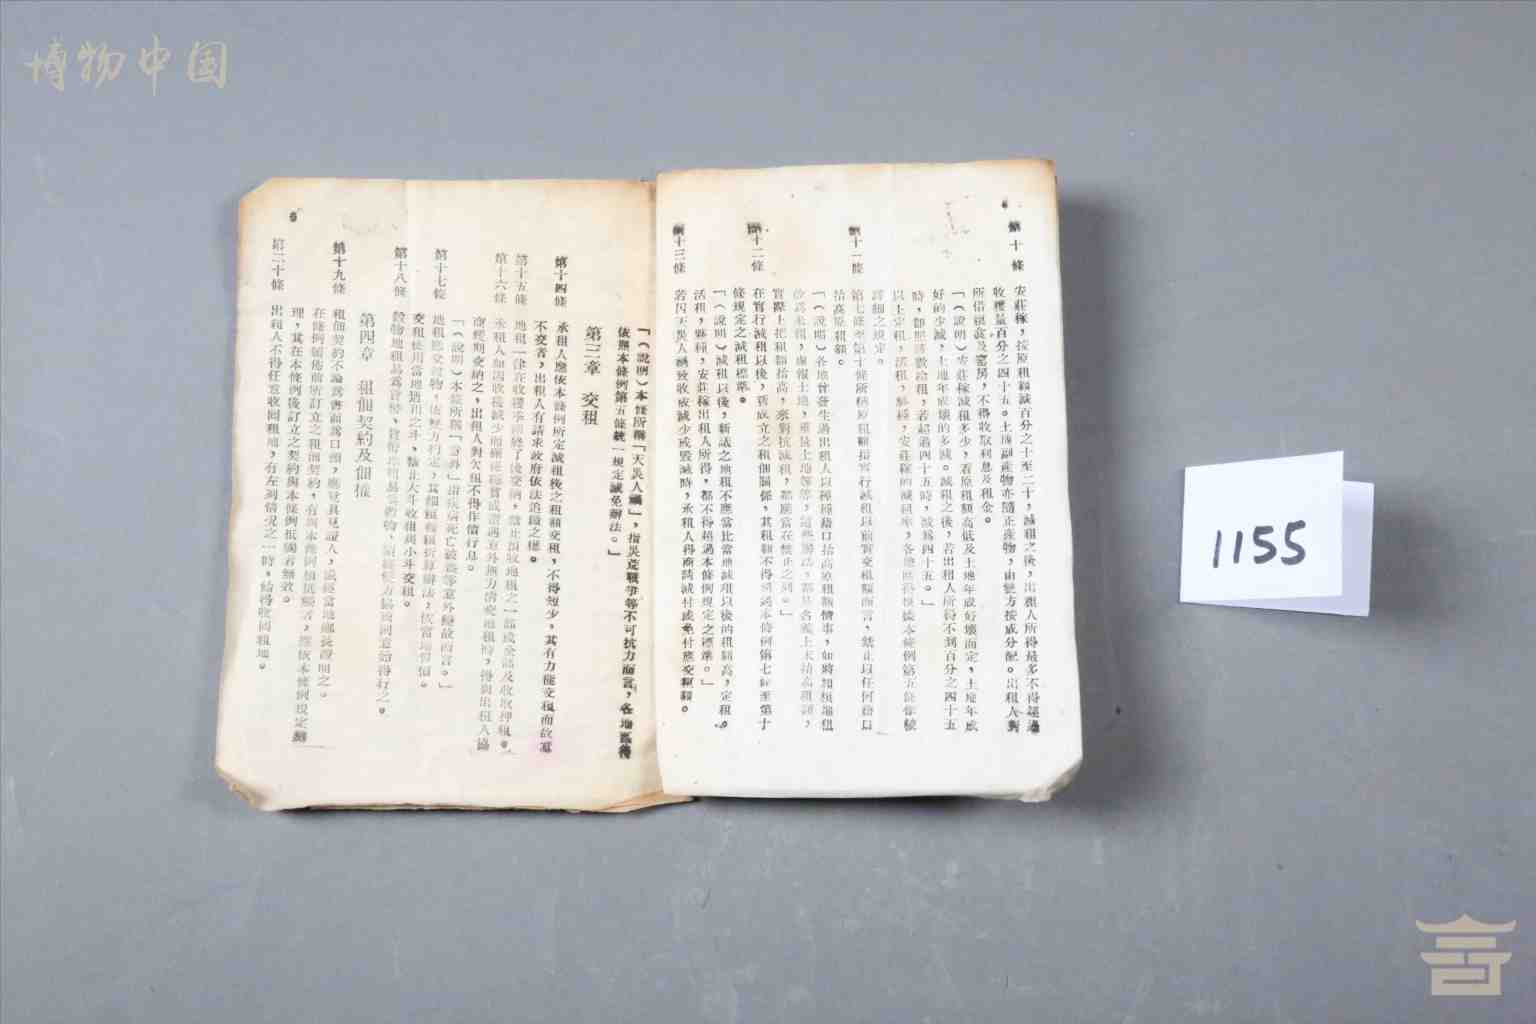 博物中国
第十條 安莊稼，按原租額減百分之十至二十，減租之後，出租人所得最多不得超過
收穫量百分之四十五。土地副產物亦隨正產物，由雙方按成分配。出租人對
所借糧食及窰房，不得收取利息及租金。
「（說明）安莊稼減租多少，看原租額高低及土地年成好壞而定，土地年成
好的少減，土地年成壞的多減。減租之後，若出租人所得不到百分之四十五
時，即照原數給租，若超過四十五時，減爲四十五。」
以上定租，活租，夥種，安莊稼的減租率，各地區得根據本條例第五條作較
詳細之規定。
第十一條 第七條至第十條所稱原租額指實行減租以前實交租額而言，禁止以任何藉口
抬高原租額。
「（說明）各地曾發生過出租人以種種藉口抬高原租額情事，如將
實際上把租額抬高，來對抗減租，都應當在禁止之列。」
第十二條 在實行減租以後，新成立之租佃關係，其租額不得超過本條例第七條至第十
條規定之減租標準。
「（說明）減租以後，新議之地租不應當比當地減租以後的租額高，定租。
活租，夥種，安莊稼出租人所得，都不得超過本條例規定之標準。」
第十三條 若因天災人禍致收成減少或毀滅時，承租人得商請減付或免付應交租額。
「（說明）本條所稱「天災人禍」，指災荒戰爭等不可抗力而言，各地區得
依照本條例第五條統一規定減免辦法。」
第三章 交租
第十四條 承租人應依本條例所定減租後之租額交租，不得短少，其有力能交租而故意
不交者，出租人有請求政府依法追繳之權。
第十五條 地租一律在收穫季節終了後交納，禁止預收地租之一部或全部及收取押租。
第十六條 承租人如因收穫減少而確係赤貧或遭遇意外無力清交地租時，得與出租人協
商緩期交納之，出租人對欠租不得作債行息。
「（說明）本條所稱「意外」指疾病死亡被盜等意外變故而言。」
第十七條
交租使用當地通用之斗，禁止大斗收租與小斗交租。
第十八條
第四章 租佃契約及佃權
第十九條 租佃契約不論爲書面爲口頭，應覓具見證人，
在條例頒佈前所訂立之租佃契約，有與本條例相抵觸者，應依本條例規定辦
理，其在本條例後訂立之契約與本條例抵觸者無效。
第二十條 出租人不得任意收回租地，有左列情況之一時，始得收回租地。
1155